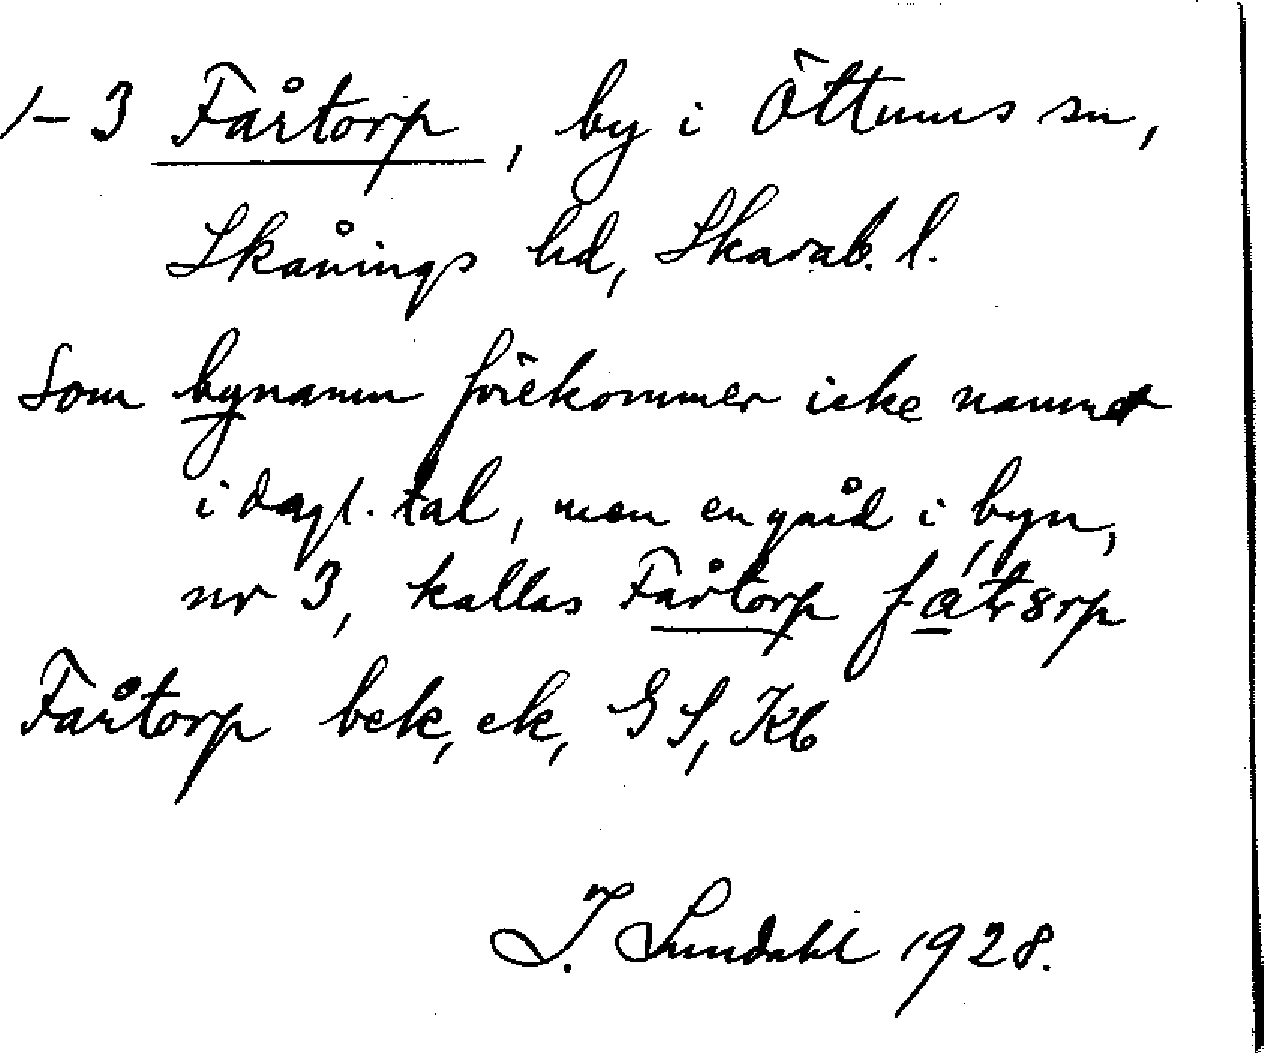 1-3 Fårtorp, by i Öttums sn,
Skånings hd, Skarab. l.
Som bynamn förekommer icke namnet
i dagl. tal, men en gård i byn,
nr 3, kallas Fårtorp
Fårtorp bek, ek, GS, Kb
I. Lundahl 1928.